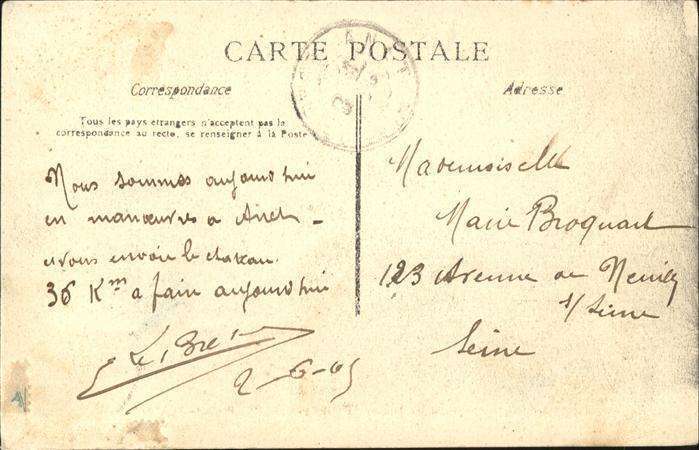 CARTE POSTALE
Correspondance
Adresse
Tous les pays étrangers n'acceptent pas la
correspondance au recto, se renseigner à la Poste
Nous sommes aujourd'hui
en manœuvres a Anet
vous envoie le chateau.
36 Km a fair aujourd'hui
2-6-05
Mademoiselle
Marie Broquart
123 Avenue de Neuilly
s/ Seine
Seine